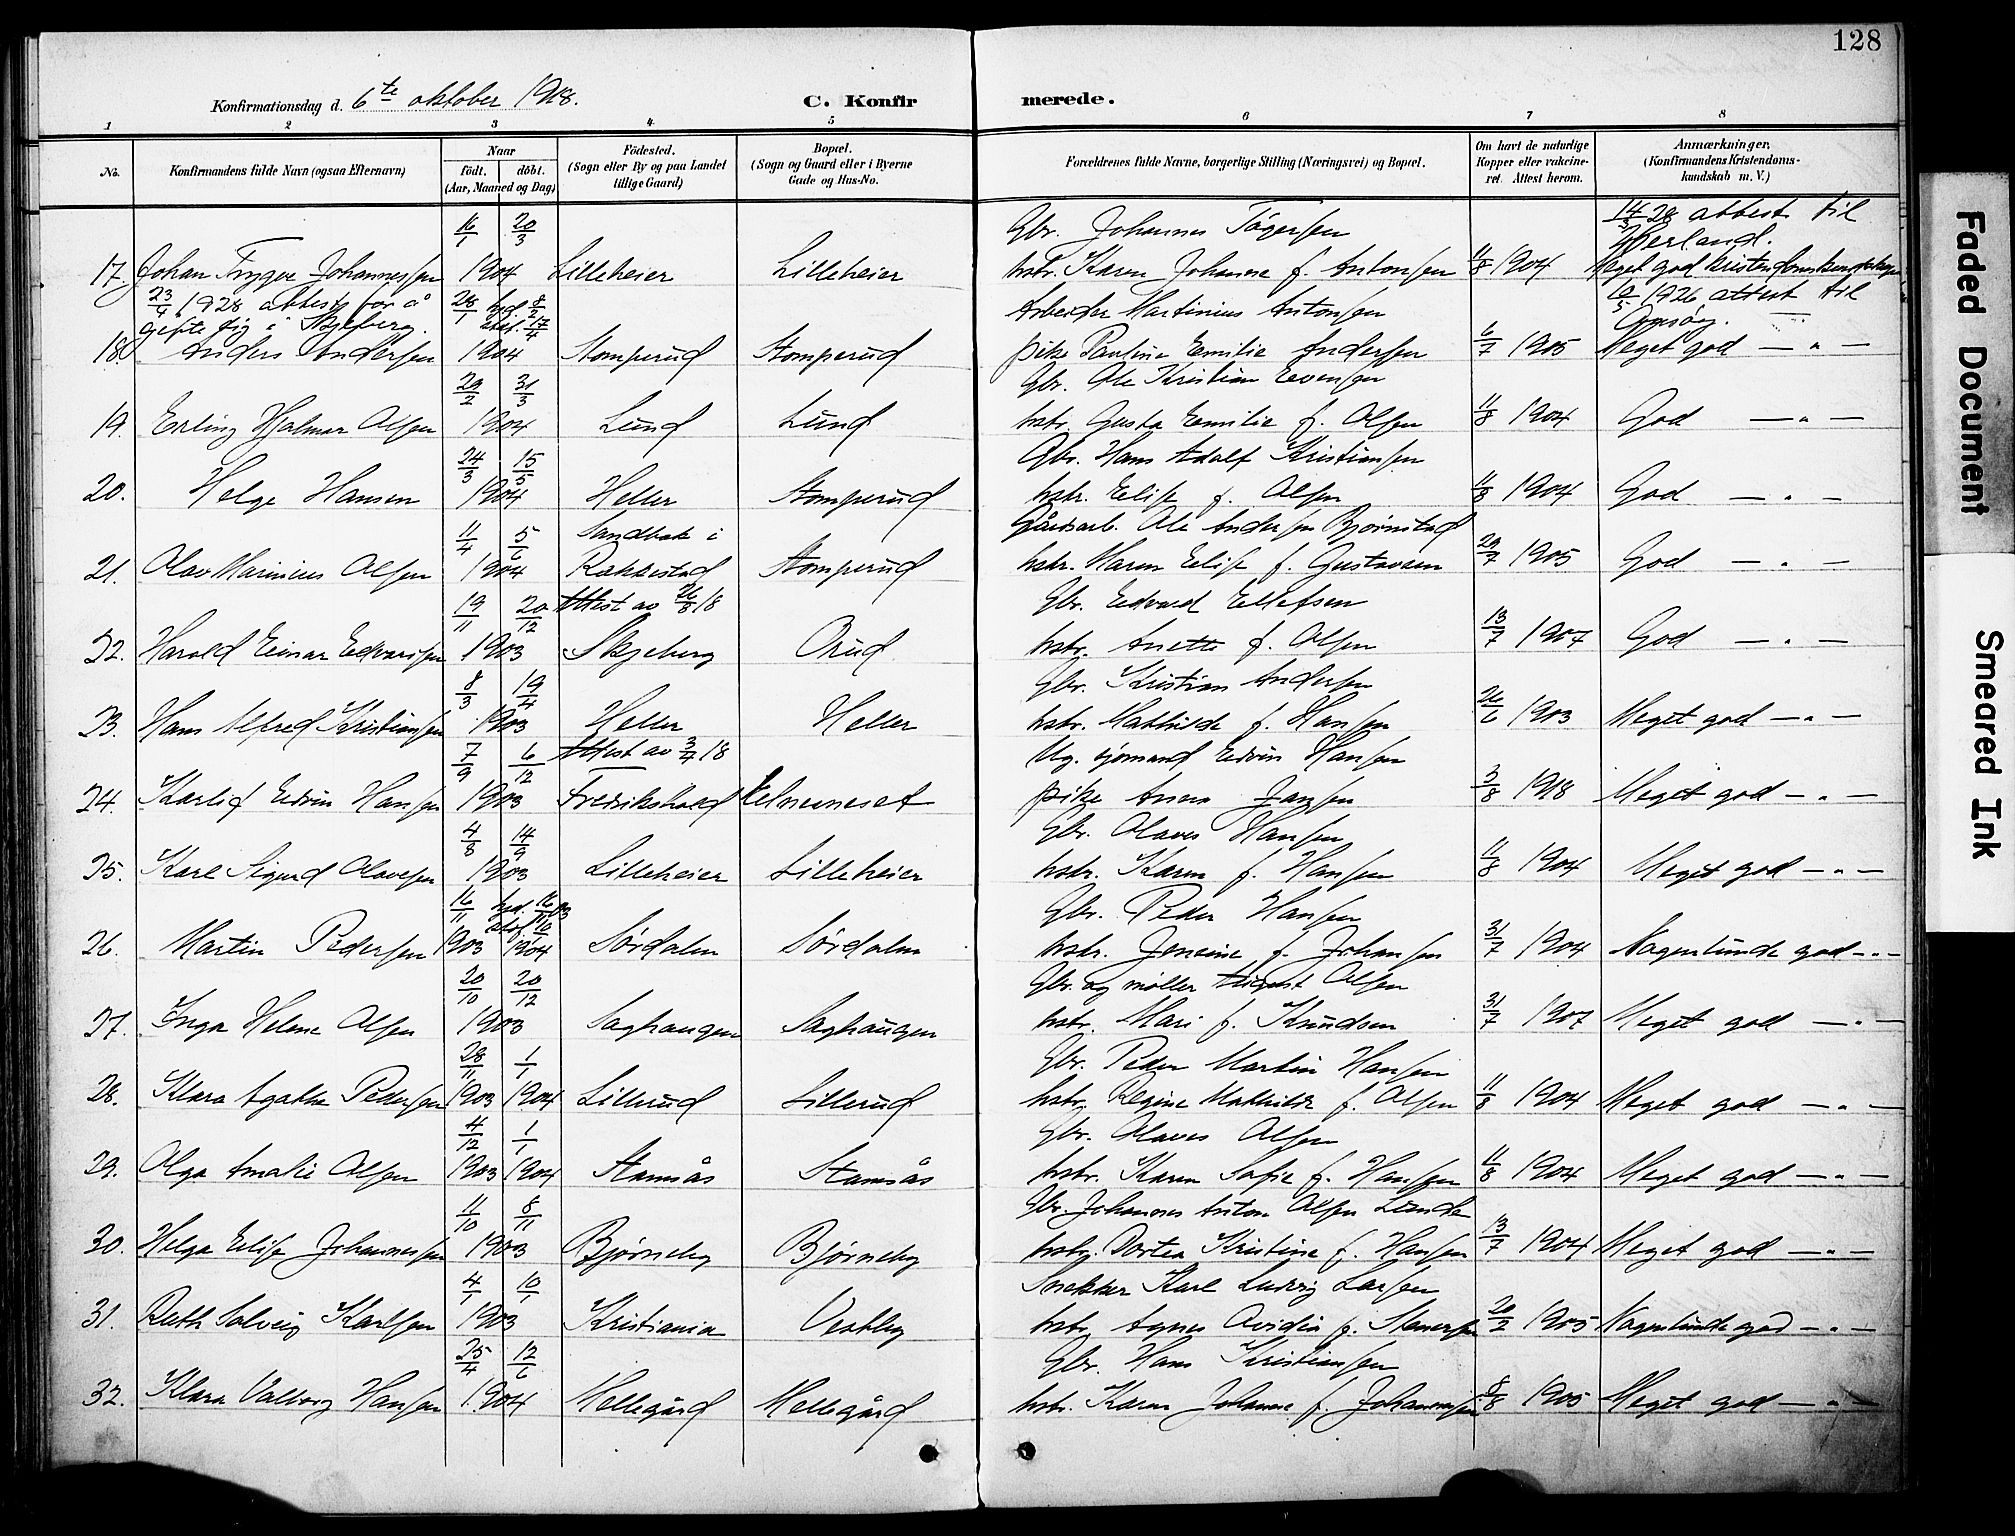 128
Konfirmationsdag d. 6te oktober 1918. C. Konfirmerede.
1 2 3 4 5 6 7 8
No. Konfirmandens fulde Navn (ogsaa Efternavn) Naar født. døbt. (Aar, Maaned og Dag) Fødested. (Sogn eller By og paa Landet tillige Gaard) Bopæl. (Sogn og Gaard eller i Byerne Gade og Hus-No. Forældrenes fulde Navne, borgerlige Stilling (Næringsvei) og Bopæl. Om havt de naturlige Kopper eller vakcineret. Attest herom. Anmærkninger. (Konfirmandens Kristendomskundskab m. V.)
16/1 20/3 Gbr. Johannes Tøgersen 28 attest til
17. Johan Trygve Johannessen 1904 Lilleheier Lilleheier hstr. Karen Johanne f. Antonsen 11/8 1904 Meget god
23/4 1928 attest for å 28/1 hjd. 8/2 Arbeider Martinius Antonsen 10/5 1926 attest til
gifte sig i Skjeberg. stf. 17/4
18. Anders Andersen 1904 Stomperud Stomperud pike Pauline Emilie Andersen 6/7 1905 Meget god — " —
29/2 31/3 Gbr. Ole Kristian Evensen
19. Erling Hjalmar Olsen 1904 Lund Lund hstr. Gusta Emilie f. Olsen 11/8 1904 God — " —
24/3 15/5 Gbr. Hans Adolf Kristiansen
20. Helge Hansen 1904 Heller Stomperud hstr. Elise f. Olsen 11/8 1904 God — " —
11/4 5/6 Sandbak i Gårdsarb. Ole Andersen Bjørnstad
21. Olav Marinius Olsen 1904 Rakkestad Stomperud hstr. Maren Elise f. Gustavsen 29/7 1905 God — " —
19/11 20/12 Attest av 26/8 18 Gbr. Edvard Ellefsen
22. Harald Einar Edvardsen 1903 Skjeberg Orud hstr. Anette f. Olsen 13/7 1907 God — " —
8/3 19/4 Gbr. Kristian Andersen
23. Hans Alfred Kristiansen 1903 Heller Heller hstr. Mathilde f. Hansen 26/6 1903 Meget god — " —
7/9 6/12 Attest av 3/4 18 Ug. sjømand Edvin Hansen
24. Karlif Edvin Hansen 1903 Fredrikshald pike Anna Jansen 3/8 1918 Meget god — " —
4/8 14/9 Gbr. Olaves Hansen
25. Karl Sigurd Olavesen 1903 Lilleheier Lilleheier hstr. Karen f. Hansen 11/8 1904 Meget god — " —
16/11 hjd. 16/11 03 Gbr. Peder Hansen
26. Martin Pedersen 1903 1904 Sørdalen Sørdalen hstr. Jensine f. Johansen 31/7 1904 Nogenlunde god — " —
20/10 20/12 Gbr. og møller August Olsen
27. Inga Helene Olsen 1903 Saghaugen Saghaugen hstr. Mari f. Knudsen 31/7 1907 Meget god — " —
28/11 1/1 Gbr. Peder Martin Hansen
28. Klara Agathe Pedersen 1903 1904 Lillerud Lillerud hstr. Regine Mathilde f. Olsen 11/8 1904 Meget god — " —
4/12 1/1 Gbr. Olaves Olsen
29. Olga Amalie Olsen 1903 1904 Stamsås Stamsås hstr. Karen Sofie f. Hanssen 11/8 1904 Meget god — " —
11/10 8/11 Gbr. Johannes Anton Olsen Lunde
30. Helga Elise Johannessen 1903 Bjørneby Bjørneby hstr. Dortea Kristine f. Hansen 13/7 1904 Meget god — " —
4/1 10/1 Snekker Karl Ludvig Larsen
31. Ruth Solveig Karlsen 1903 Kristiania Vestby hstr. Agnes Ovidia f. Stenersen 20/2 1905 Nogenlunde god — " —
25/4 12/6 Gbr. Hans Kristiansen
32. Klara Valborg Hansen 1904 Hellegård Hellegård hstr. Karen Johanne f. Johannessen 8/8 1905 Meget god — " —
Faded Document
Smeared Ink